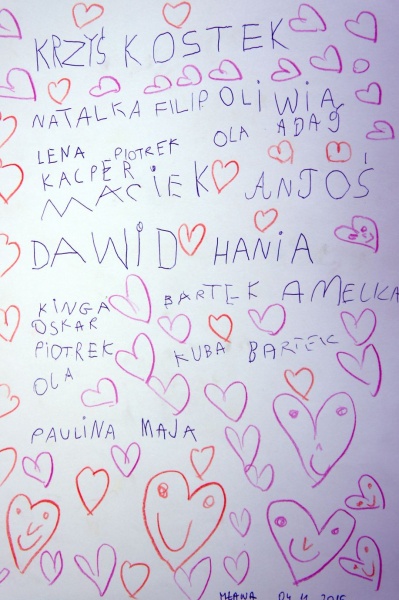 KRZYŚ KOSTEK
NATALKA FILIP OLIWIA
OLA ADAŚ
LENA PIOTREK
KACPER
MACIEK ANTOŚ
DAWID HANIA
KINGA BARTEK AMELKA
OSKAR
PIOTREK KUBA BARTEK
OLA
PAULINA MAJA
MŁAWA 04 11 2015